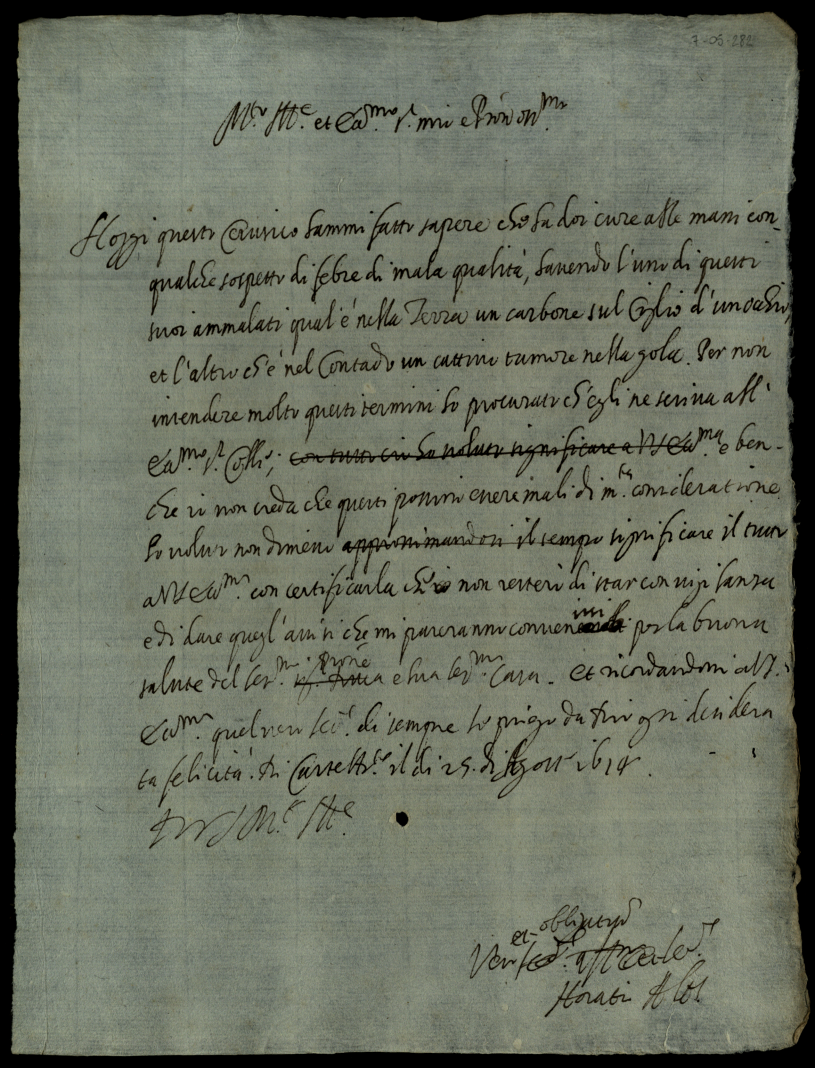 7-05-282
Hoggi questo Cerusico hammi fatto sapere che ha doi cure alle mani con
qualche sospetto di febre di mala qualità, havendo l'uno di questi
suoi ammalati qual'è nella Terra un carbone sul Ciglio d'un ochio,
et l'altro ch'è nel Contado un cattivo tumore nella gola. Per non
intendere molto questi termini ho procurato ch'egli ne scriva all'
con tutto ciò ho voluto significare a e ben-
che io non creda che questi possino essere mali di m.ta consideratione
ho voluto nondimeno approssimandosi il tempo significare il tutto
con certificarla ch'io non resterò di star con vigilanza
e di dare quegl'avisi che mi pareranno convenienti per la buona
salute del Ser.mo Prone e sua Ser.ma Casa. et ricordandomi a V.S.
quel vero di sempre le prego da Dio ogni desidera
ta felicità. Di il di 25. di Agosto 1614.
Di V S M.to Ill.e
et obligatiss
Horatio